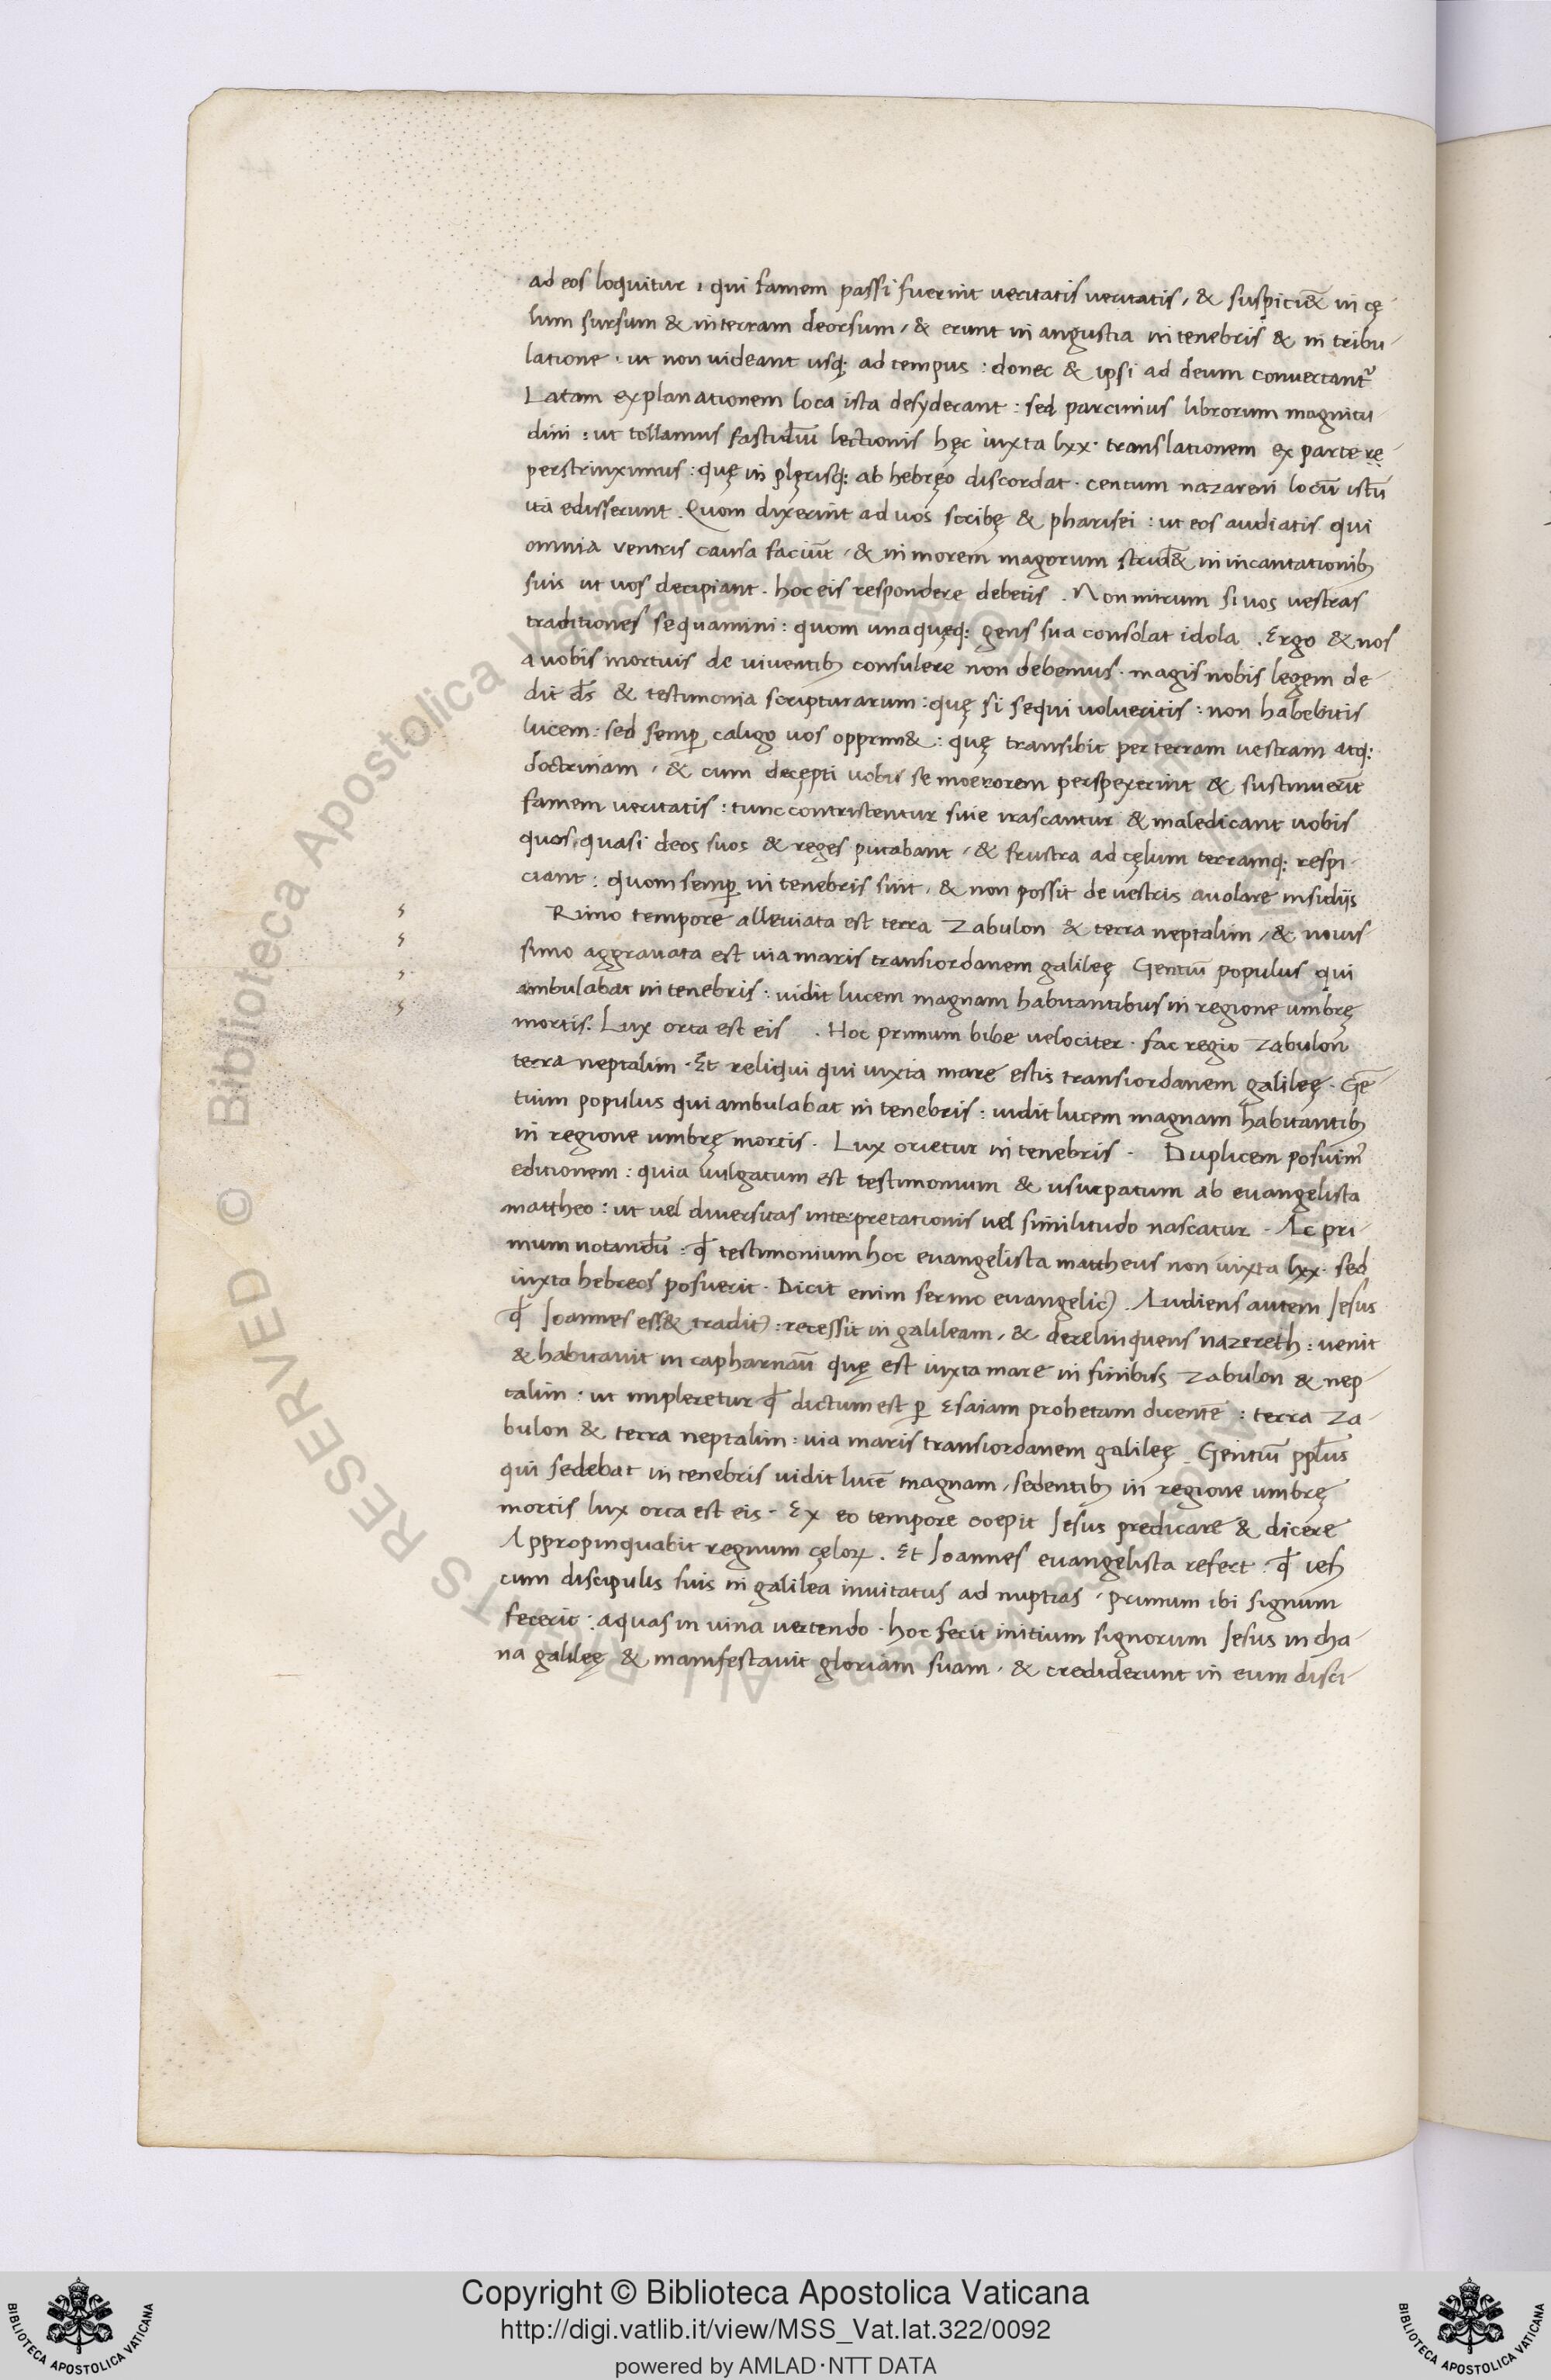 ad eos loquitur, qui famem passi fuerint veritatis veritatis, & suspiciēt in cę-
lum sursum & in terram deorsum, & erunt in angustia in tenebris & in tribu-
latione, ut non uideant usq; ad tempus: donec & ipsi ad deum convertantr̃
Latam explanationem loca ista desyderant: sed parcimus librorum magnitu-
dini: ut tollamus fastidiū lectionis hęc iuxta lxx. translationem ex parte rę
perstrinximus: quę in plęrisq; ab hebręo discordat. centum nazareni locū istū
ita edisserunt. Quom dixerint ad uos scribę & pharisei: ut eos audiatis qui
omnia ventris causa faciūt, & in morem magorum strid& in incantationib;
suis ut uos decipiant. hoc eis respondere debetis. Non mirum si uos uestras
traditiones sequamini: quom unaquęq; gens sua consolat idola. Ergo & nos
a uobis mortuis de uiuentib; consulere non debemus. magis nobis legem de-
dit d̄s & testimonia scripturarum: quę si sequi uolueritis: non habebitis
lucem: sed semp̱ caligo uos opprim&: quę transibit per terram uestram atq;
doctrinam, & cum decępti uobis se moerorem perspexerint & sustinuerīt
famem veritatis: tunc contristentur suie irascantur & maledicant uobis
quos quasi deos suos & reges putabant, & frustra ad cęlum terramq; respi-
ciant: quom semp̱ in tenebris sint, & non possit de uestris auolare insidijs
Rimo tempore alleuiata est terra Zabulon & terra neptalim, & nouis-
simo aggrauata est uia maris transiordanem galileę Gentiū populus qui
ambulabat in tenebris: uidit lucem magnam habitantibus in regione umbrę
mortis. Lux orta est eis. Hoc primum bibe uelociter. fac regio Zabulon
terra neptalim. Et reliqui qui iuxta mare estis transiordanem galileę. Gē-
tium populus qui ambulabat in tenebris: uidit lucem magnam habitantib;
in regione umbrę mortis. Lux orietur in tenebris. Duplicem posuim᾿
editionem: quia uulgatum est testimonium & usurpatum ab euangelista
mattheo: ut uel diuersitas interpretationis uel similitudo nascatur. Ac pri-
mum notandū: qđ testimonium hoc euangelista mattheus non iuxta lxx. sed
iuxta hebreos posuerit. Dicit enim sermo euangelicꝰ. Audiens autem Jesus
qđ Joannes ess& traditꝰ: recessit in galileam, & derelinquens nazereth: uenit
& habitauit in capharnaū quę est iuxta mare in finibus Zabulon & nep-
talim: ut impleretur qđ dictum est p̱ Esaiam prohetam dicentē: terra Za-
bulon & terra neptalim: uia maris transiordanem galileę Gentiū pp̄lus
qui sedebat in tenebris uidit lucē magnam, sedentib; in regione umbrę
mortis lux orta est eis. Ex eo tempore coepit Jesus predicare & dicere
Appropinquabit regnum cęloꝝ. Et Joannes euangelista refert: qđ
cum discipulis suis in galilea inuitatus ad nuptias, primum ibi signum
fecerit: aquas in uina uertendo. hoc fecit initium signorum Jesus in cha-
na galileę & manifestauit gloriam suam, & crediderunt in eum disci-
Copyright © Biblioteca Apostolica Vaticana
http://digi.vatlib.it/view/MSS_Vat.lat.322/0092
powered by AMLAD·NTT DATA
BIBLIOTECA APOSTOLICA VATICANA
BIBLIOTECA APOSTOLICA VATICANA